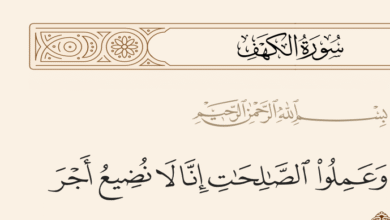 سُورَةُ الكَهْفِ
بِسْمِ اللَّهِ الرَّحْمَٰنِ الرَّحِيمِ
وَعَمِلُوا۟ ٱلصَّـٰلِحَـٰتِ إِنَّا لَا نُضِيعُ أَجْرَ